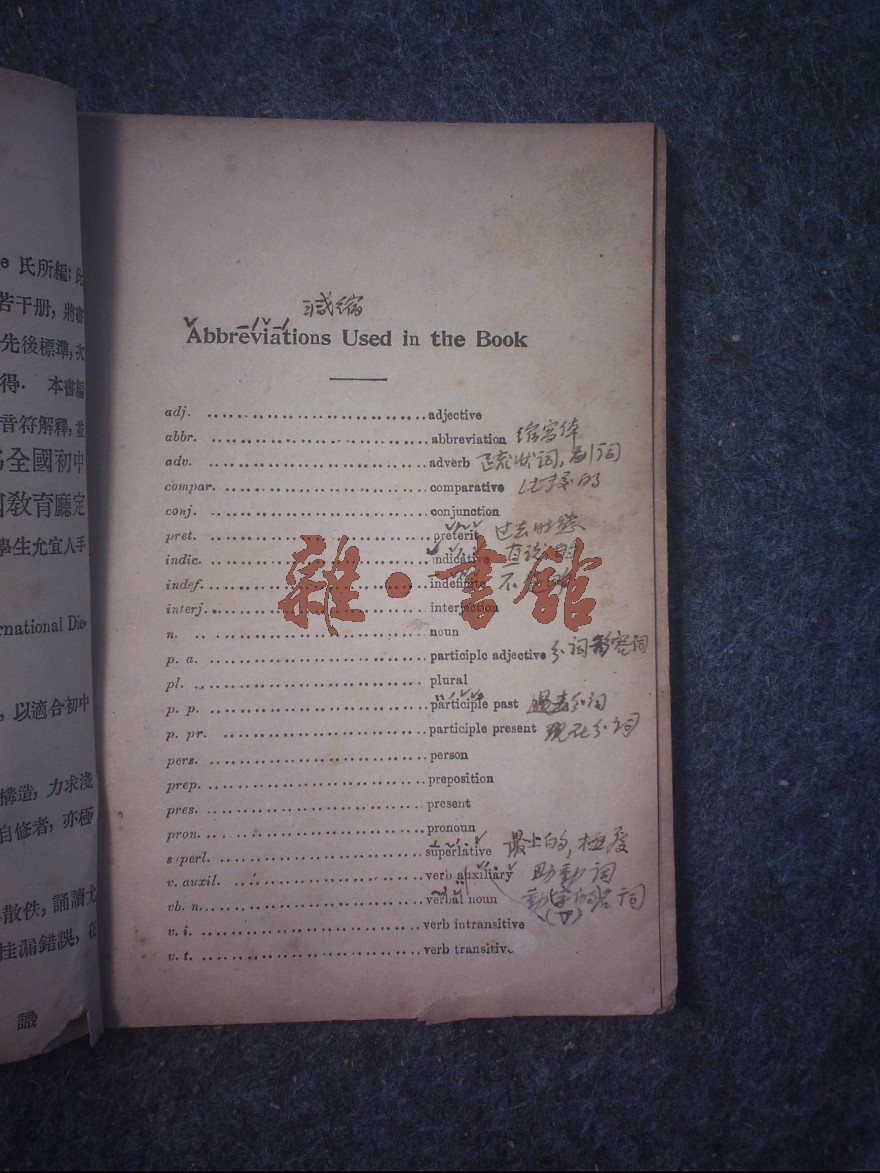 e 氏所編; 此
若干册, 將
先後標準, 次
得. 本書編
音符解釋, 並
全國初中
教育廳定
學生尤宜人手
rnational Dic-
, 以適合初中
構造, 力求淺
自修者, 亦極
散佚, 誦讀尤
挂漏錯誤, 在
識
缩
Abbreviations Used in the Book
adj. adjective
abbr. abbreviation 缩写体
adv. adverb 状词, 副词
compar. comparative 比较的
conj. conjunction
pret. preterit 过去时
indic. indicative 直说
indef. indefinite 不
interj. interjection
n. noun
p. a. participle adjective 分词形容词
pl. plural
p. p. participle past 過去分词
p. pr. participle present 現在分词
pers. person
prep. preposition
pres. present
pron. pronoun
superl. superlative 最上的, 極度
v. auxil. verb auxiliary 助動词
vb. n. verbal noun 動字的名词
v. i. verb intransitive
v. t. verb transitive
雜·書館